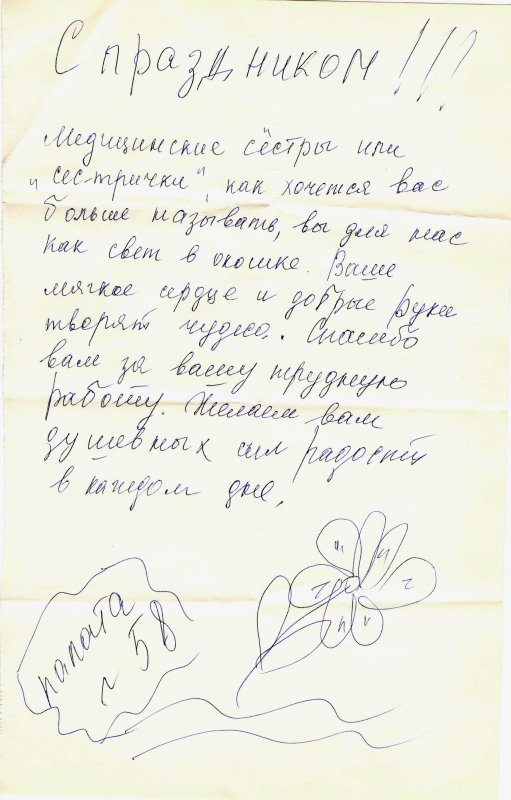 С праздником!!!
Медицинские сёстры или
„сестрички", как хочется вас
больше называть, вы для нас
как свет в окошке. Ваше
мягкое сердце и добрые руки
творят чудеса. Спасибо
вам за вашу трудную
работу. Желаем вам
душевных сил радости
в каждом дне.
палата
58